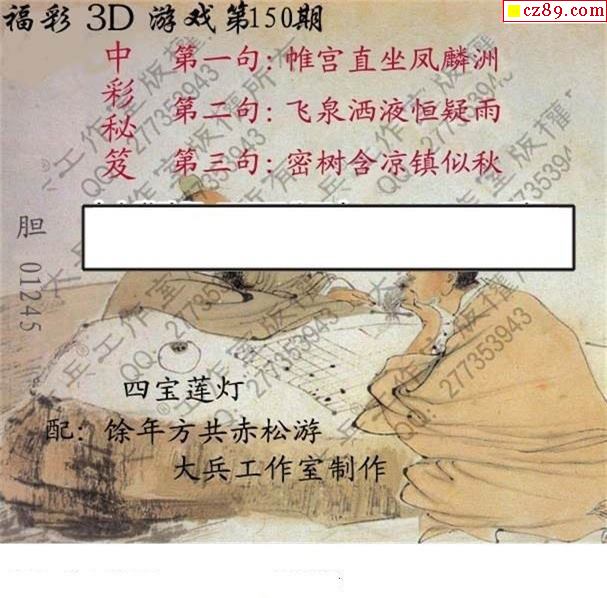 福彩 3D 游戏第150期
cz89.com
中彩秘笈
第一句: 帷宫直坐凤麟洲
第二句: 飞泉洒液恒疑雨
第三句: 密树含凉镇似秋
胆 01245
四宝莲灯
配: 馀年方共赤松游
大兵工作室制作
大兵工作室版权所有
QQ: 277353943